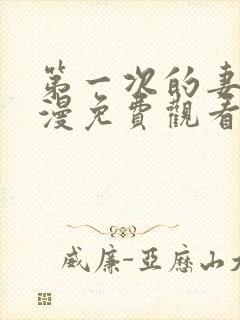 第一次的妻
漫免費觀看
威廉-亞歷山大